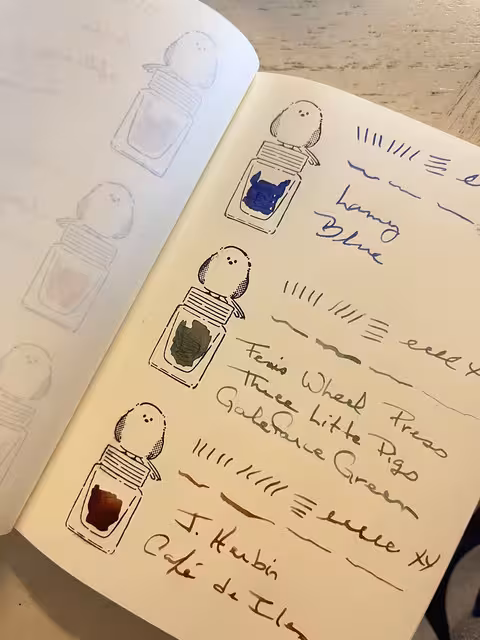 Lamy
Blue
Ferris Wheel Press
Three Little Pigs
Green
xy
J. Herbin
Café de Iles